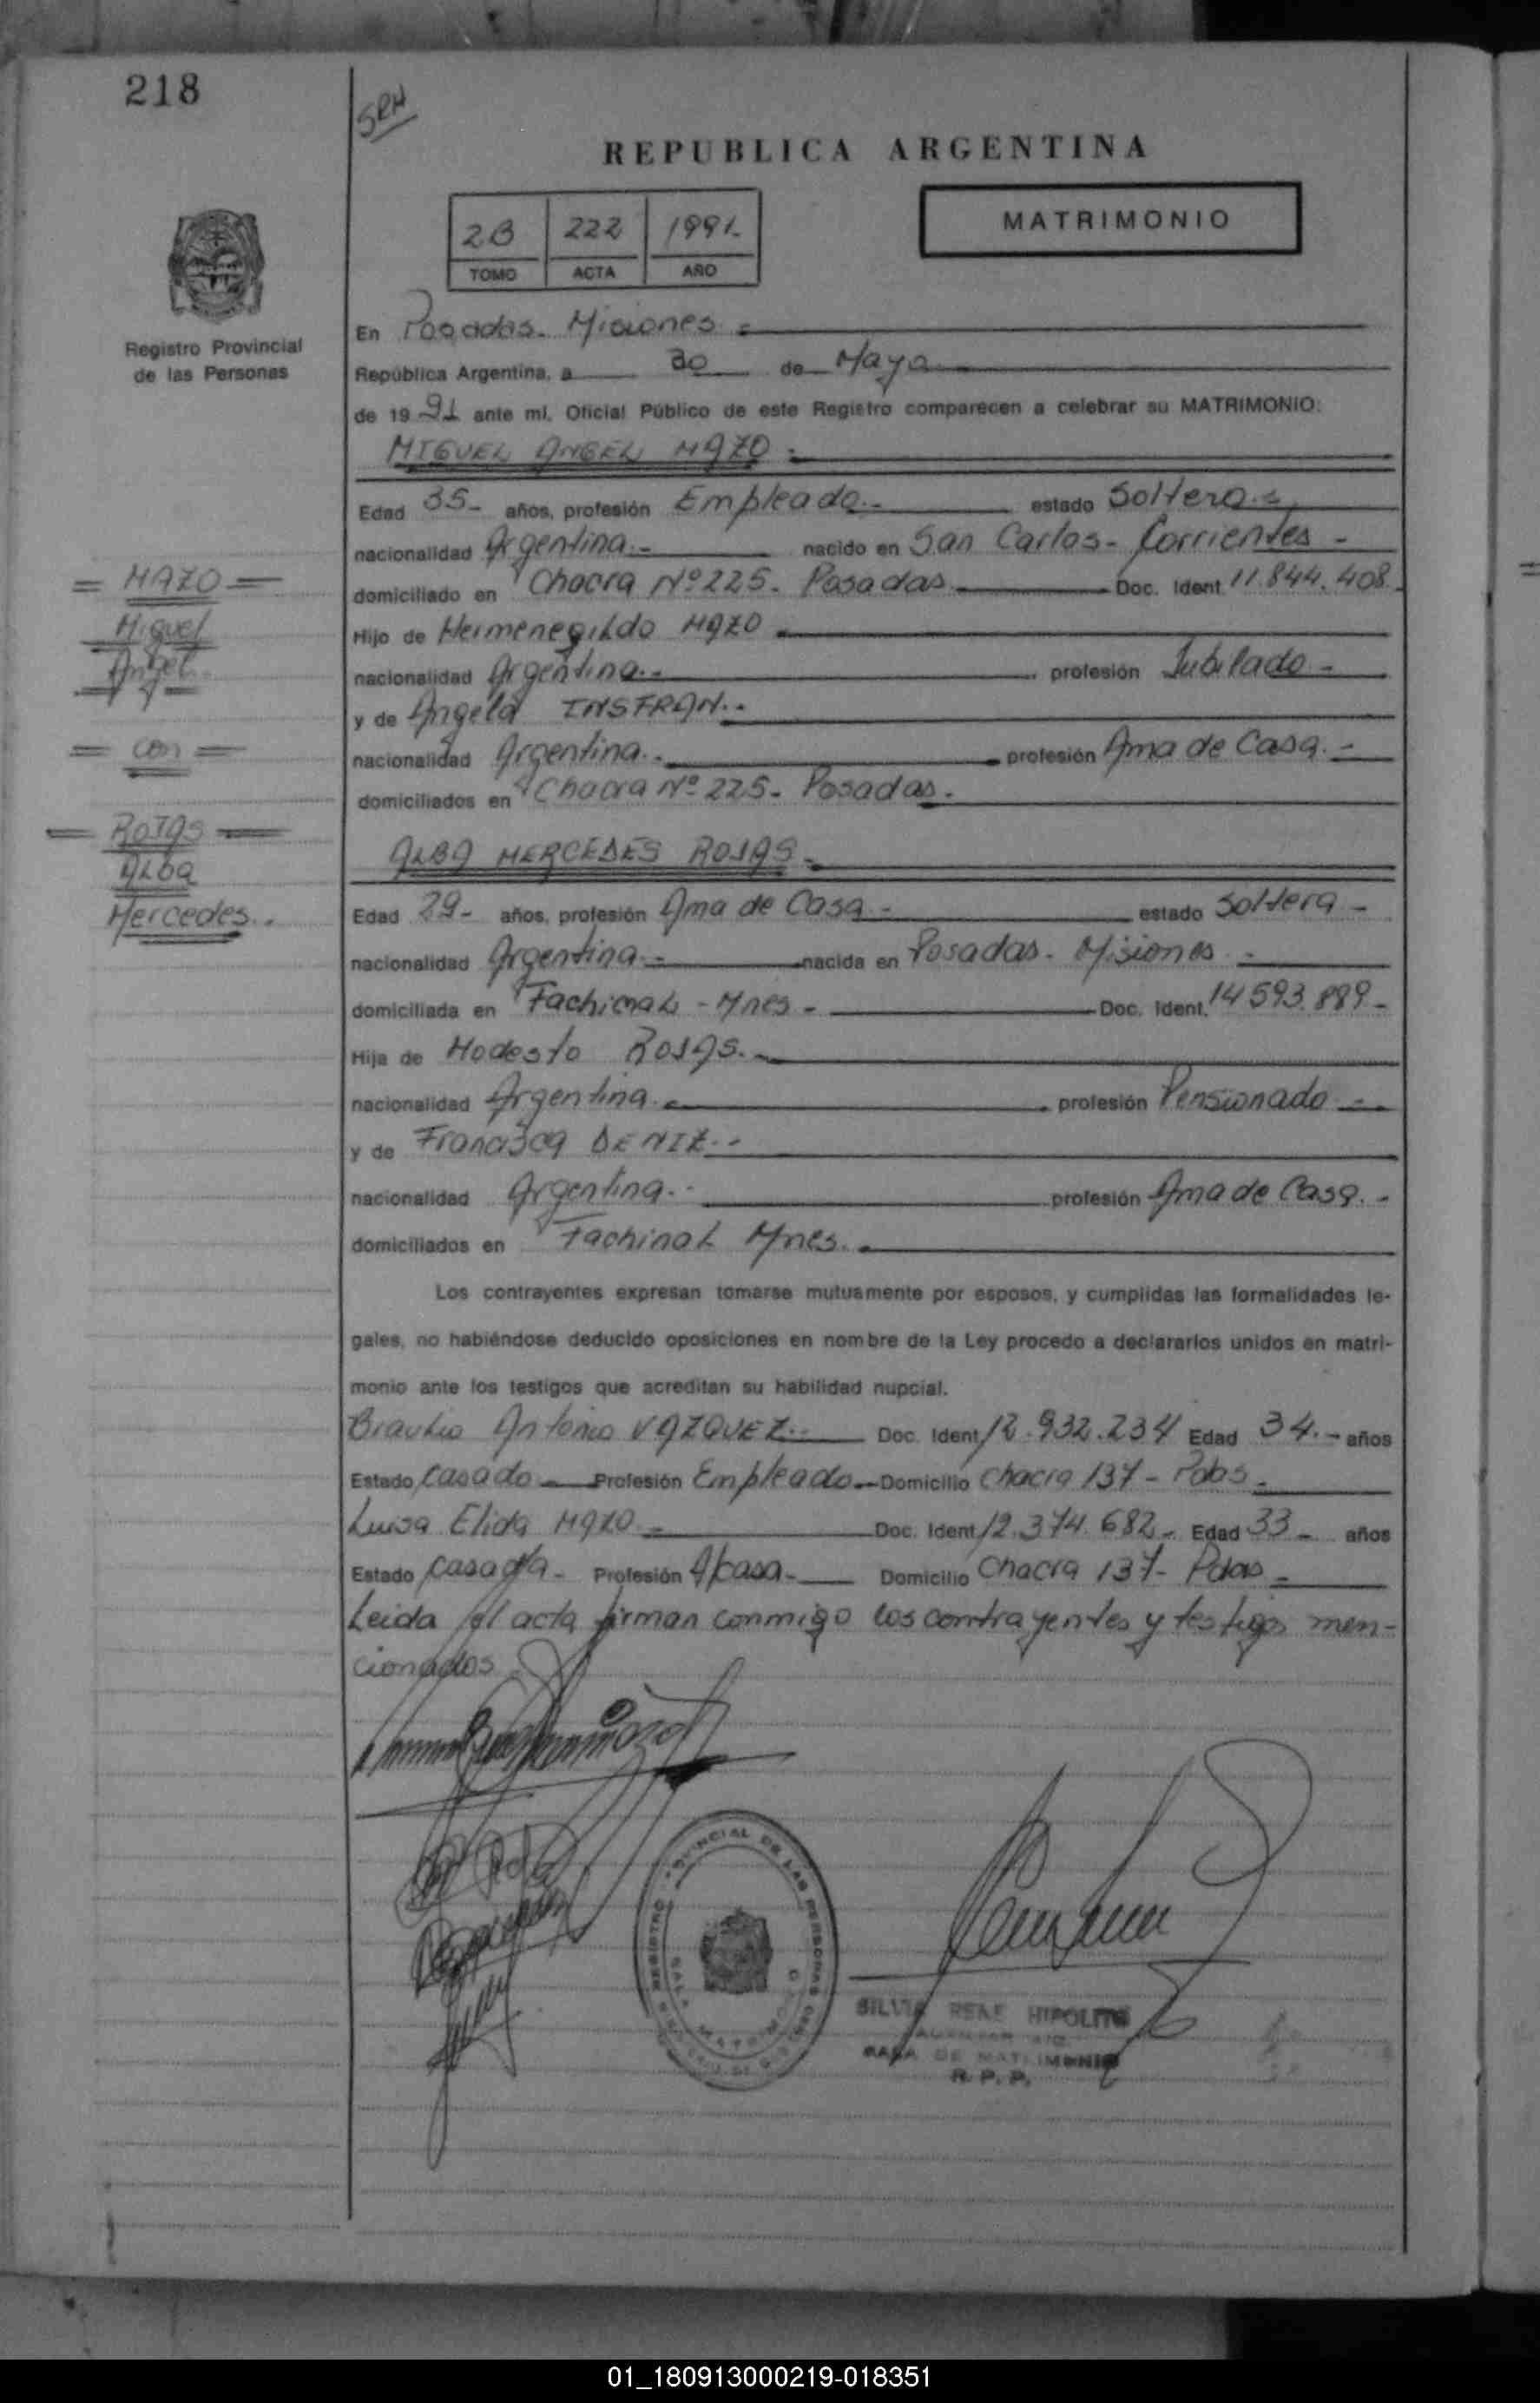 218
SRH
REPUBLICA ARGENTINA
2B 222 1991-
TOMO ACTA AÑO
MATRIMONIO
Registro Provincial
de las Personas
En Posadas- Misiones
República Argentina, a 30 de Mayo
de 1991 ante mí, Oficial Público de este Registro comparecen a celebrar su MATRIMONIO:
MIGUEL ANGEL MAZO.-
Edad 35- años, profesión Empleado.- estado Soltero.-
nacionalidad Argentina.- nacido en San Carlos- Corrientes -
domiciliado en Chacra Nº 225- Posadas Doc. Ident. 11.844.408.
Hijo de Hermenegildo MAZO
nacionalidad Argentina.- profesión Jubilado -
y de Angela INSFRAN.-
nacionalidad Argentina.- profesión Ama de Casa.-
domiciliados en Chacra Nº 225- Posadas.
= MAZO =
Miguel
Angel
= con =
= ROJAS =
ALBA
Mercedes.
ALBA MERCEDES ROJAS.-
Edad 29- años, profesión Ama de Casa - estado Soltera -
nacionalidad Argentina.- nacida en Posadas- Misiones -
domiciliada en Fachinal - Mnes - Doc. Ident. 14593.889-
Hija de Modesto ROJAS.-
nacionalidad Argentina.- profesión Pensionado -
y de Francisca DENIZ.-
nacionalidad Argentina.- profesión Ama de Casa.-
domiciliados en Fachinal Mnes.
Los contrayentes expresan tomarse mutuamente por esposos, y cumplidas las formalidades le-
gales, no habiéndose deducido oposiciones en nombre de la Ley procedo a declararlos unidos en matri-
monio ante los testigos que acreditan su habilidad nupcial.
Braulio Antonio VAZQUEZ.- Doc. Ident 12.932.234 Edad 34.- años
Estado Casado - Profesión Empleado - Domicilio Chacra 137- Pdas-
Luisa Elida MAZO - Doc. Ident 12.374.682- Edad 33 - años
Estado Casada - Profesión A/casa- Domicilio Chacra 137- Pdas -
Leida el acta firman conmigo los contrayentes y testigos men-
cionados
REGISTRO PROVINCIAL DE LAS PERSONAS
SALA MATRIMONIO
SILVIA RENE HIPOLITO
SALA DE MATRIMONIO
R. P. P.
01_180913000219-018351